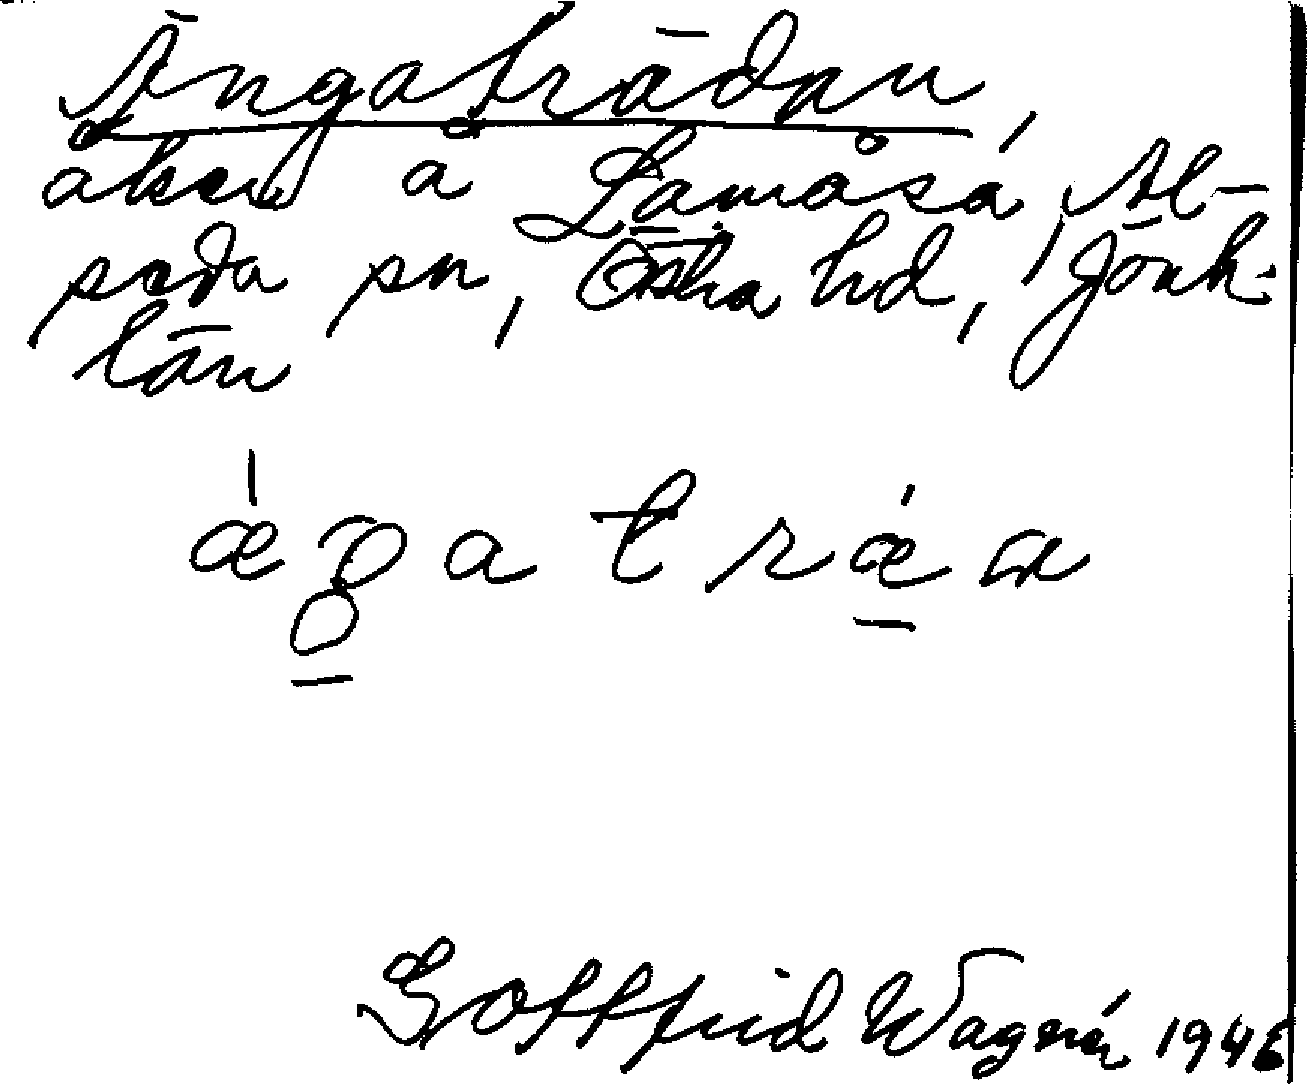 Ängaträdan,
åker å Lamåsa, Al-
seda sn, Östra hd, Jönk.
län
Gottfrid Wagnér 1946